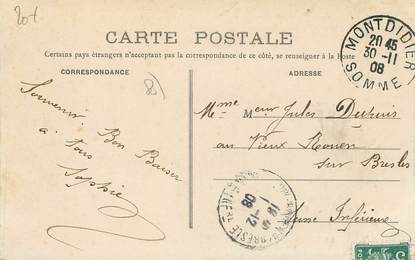 20+
CARTE POSTALE
Certains pays étrangers n'acceptant pas la correspondance de ce côté, se renseigner à la Poste
CORRESPONDANCE
ADRESSE
Souvenir. Bon Baiser
à tous
Sophie
Mme Meur Jules Dubuis
au Vieux Rouen
sur Bresle
Seine Inférieure
MONTDIDIER
20 45
30 -11
08
SOMME
18 5
1 -12
08
5